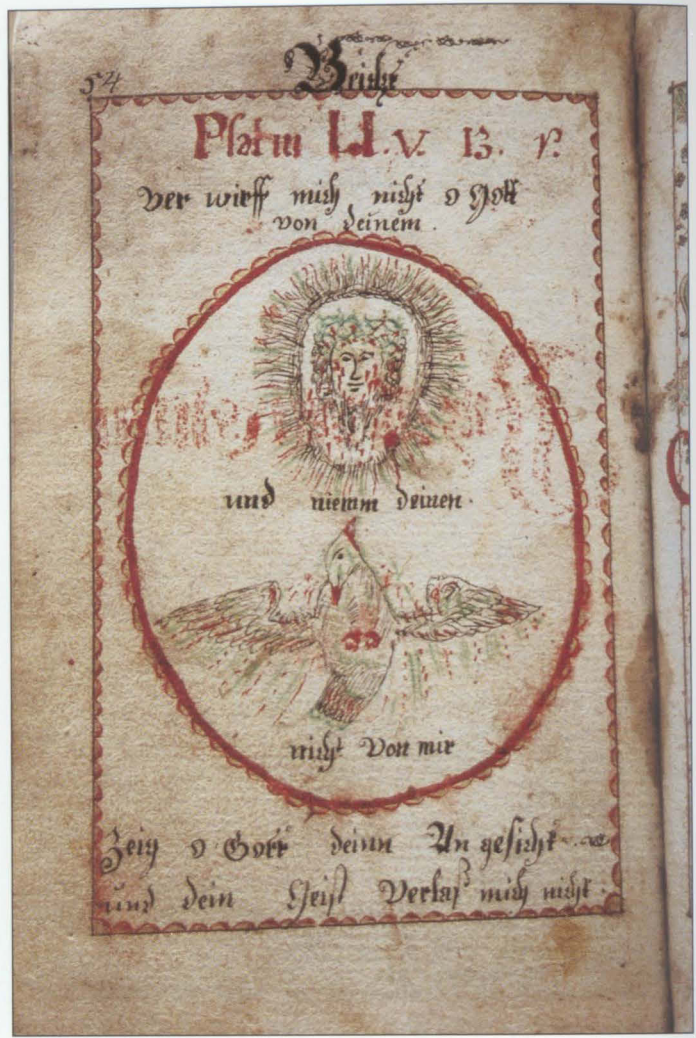 54
Beicht
Psalm LI. V. 13. v.
ver wirff mich nicht o Gott
von deinem.
und niemm deinen.
nicht Von mir
Zeig o Gott deinn An gesicht
und dein Geist Verlaß mich nicht.